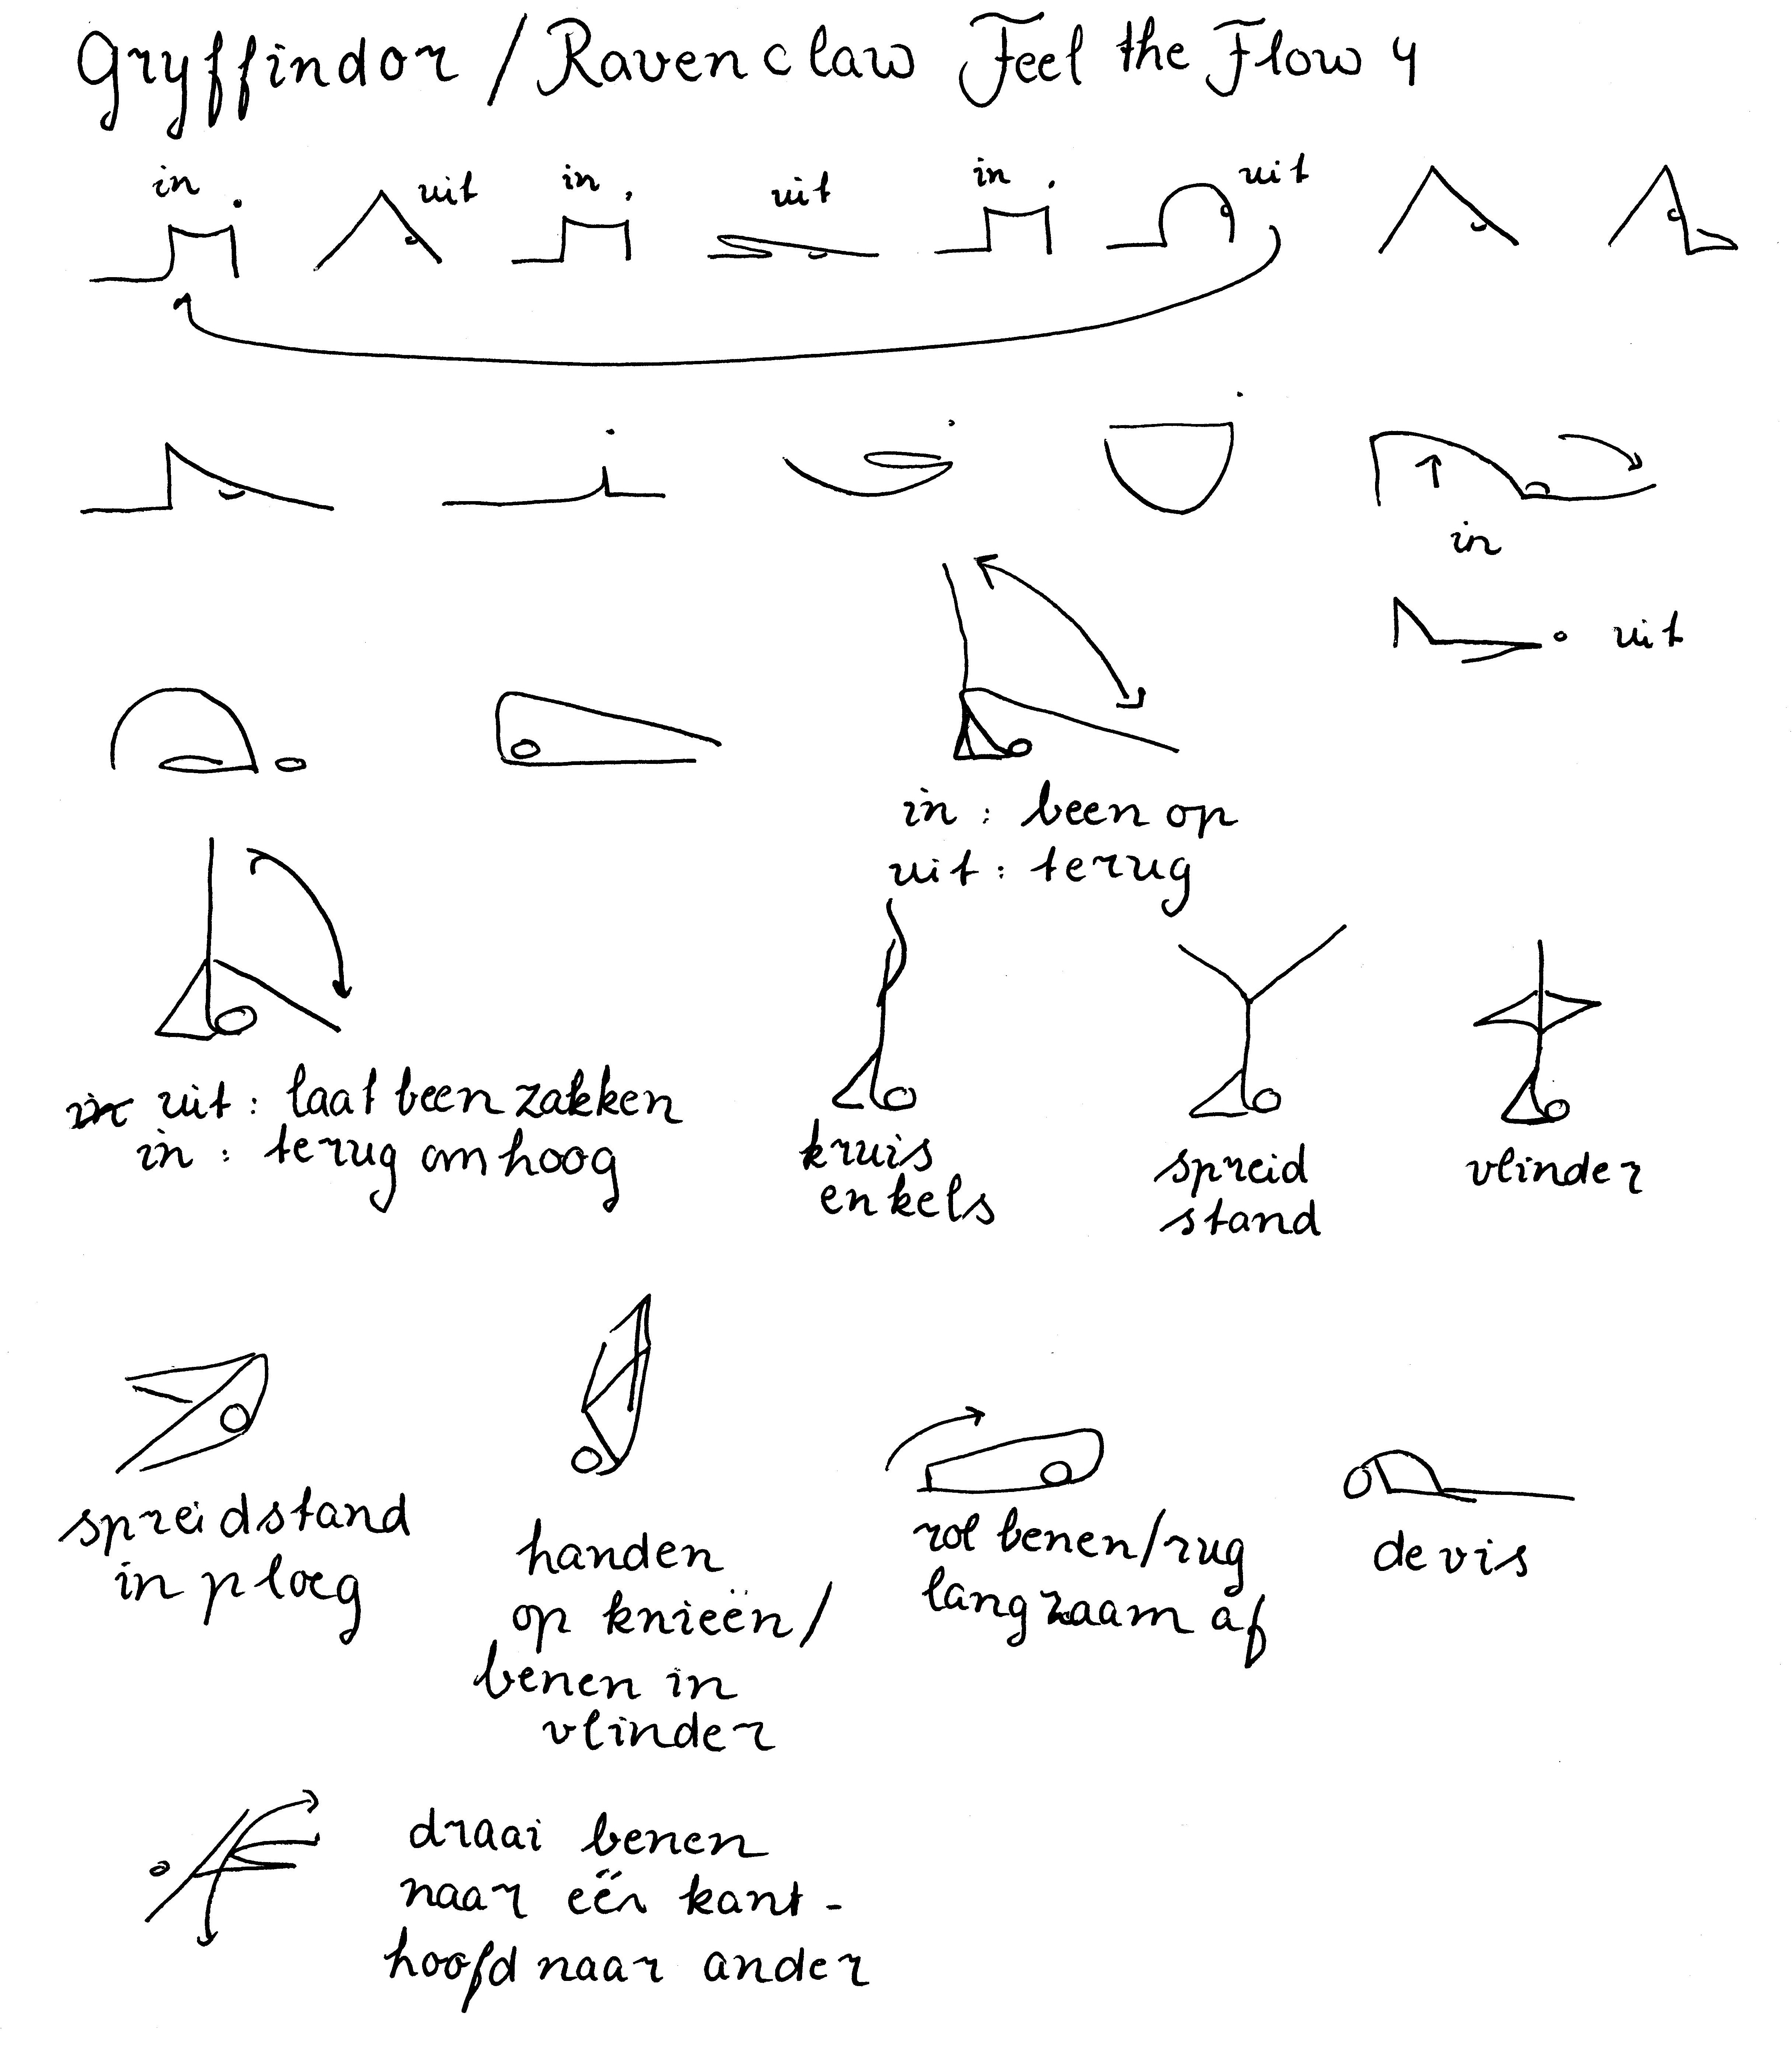 Gryffindor / Ravenclaw Feel the Flow 4
in uit in uit in uit
in
uit
in : been op
uit : terug
in uit : laat been zakken
in : terug omhoog
kruis
enkels
spreid
stand
vlinder
spreidstand
in ploeg
handen
op knieën /
benen in
vlinder
rol benen / rug
langzaam af
de vis
draai benen
naar één kant -
hoofd naar ander